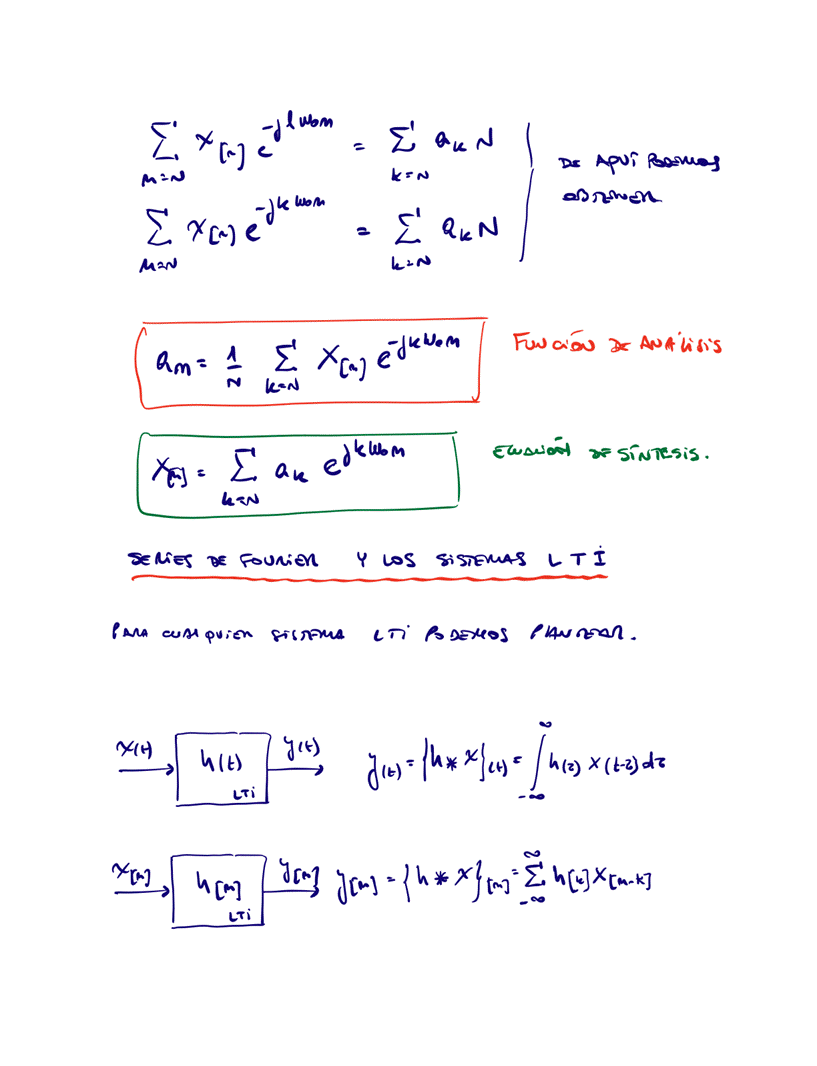 ∑_{n=N} x[n] e^{-jlω₀n} = ∑_{k=N} a_k N
DE AQUÍ PODEMOS
OBTENER
∑_{n=N} x[n] e^{-jkω₀n} = ∑_{k=N} a_k N
a_n = 1/N ∑_{k=N} x[n] e^{-jkω₀n}
FUNCIÓN DE ANÁLISIS
x[n] = ∑_{k=N} a_k e^{jkω₀n}
ECUACIÓN DE SÍNTESIS.
SERIES DE FOURIER Y LOS SISTEMAS LTI
PARA CUALQUIER SISTEMA LTI PODEMOS PLANTEAR.
x(t) h(t) LTI y(t) y(t) = {h * x}(t) = ∫_{-∞}^{∞} h(τ) x(t-τ) dτ
x[n] h[n] LTI y[n] y[n] = {h * x}[n] = ∑_{-∞}^{∞} h[k] x[n-k]